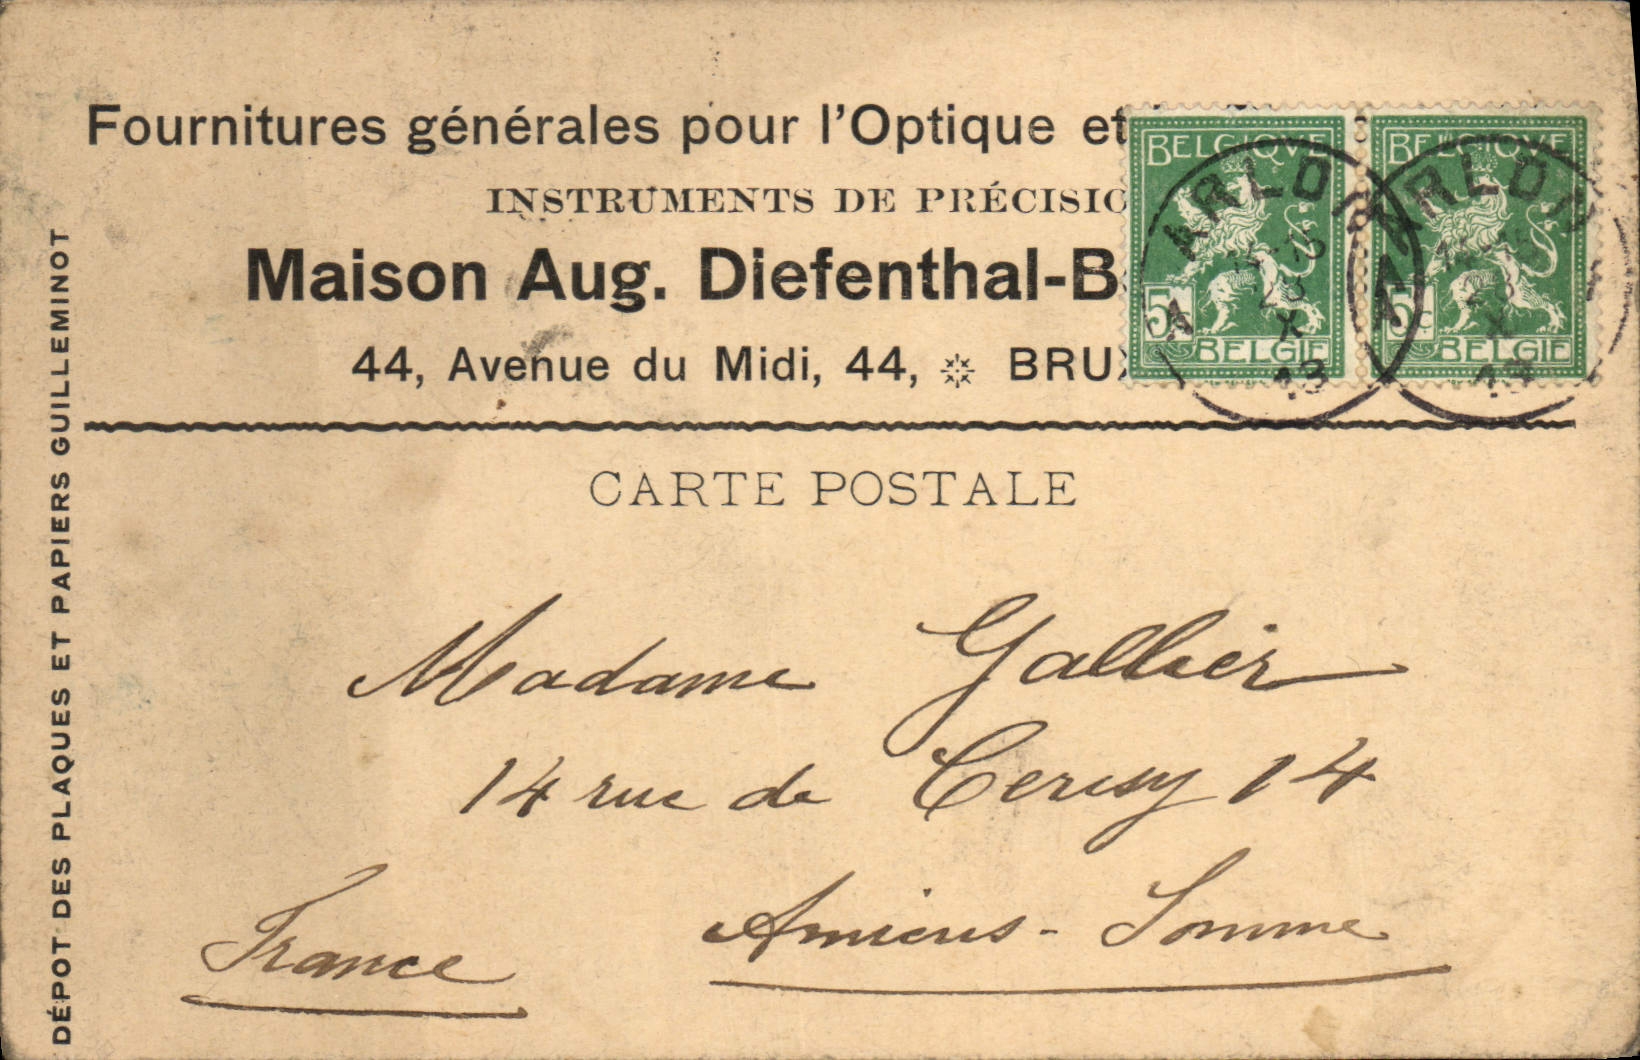 Fournitures générales pour l'Optique et
INSTRUMENTS DE PRÉCISIO
Maison Aug. Diefenthal-B
44, Avenue du Midi, 44, BRUX
DÉPOT DES PLAQUES ET PAPIERS GUILLEMINOT
BELGIQVE
5c
BELGIE
BELGIQVE
5c
BELGIE
ARLON
23
X
13
ARLON
23
X
13
CARTE POSTALE
Madame Gallier
14 rue de Cerisy 14
Amiens - Somme
France